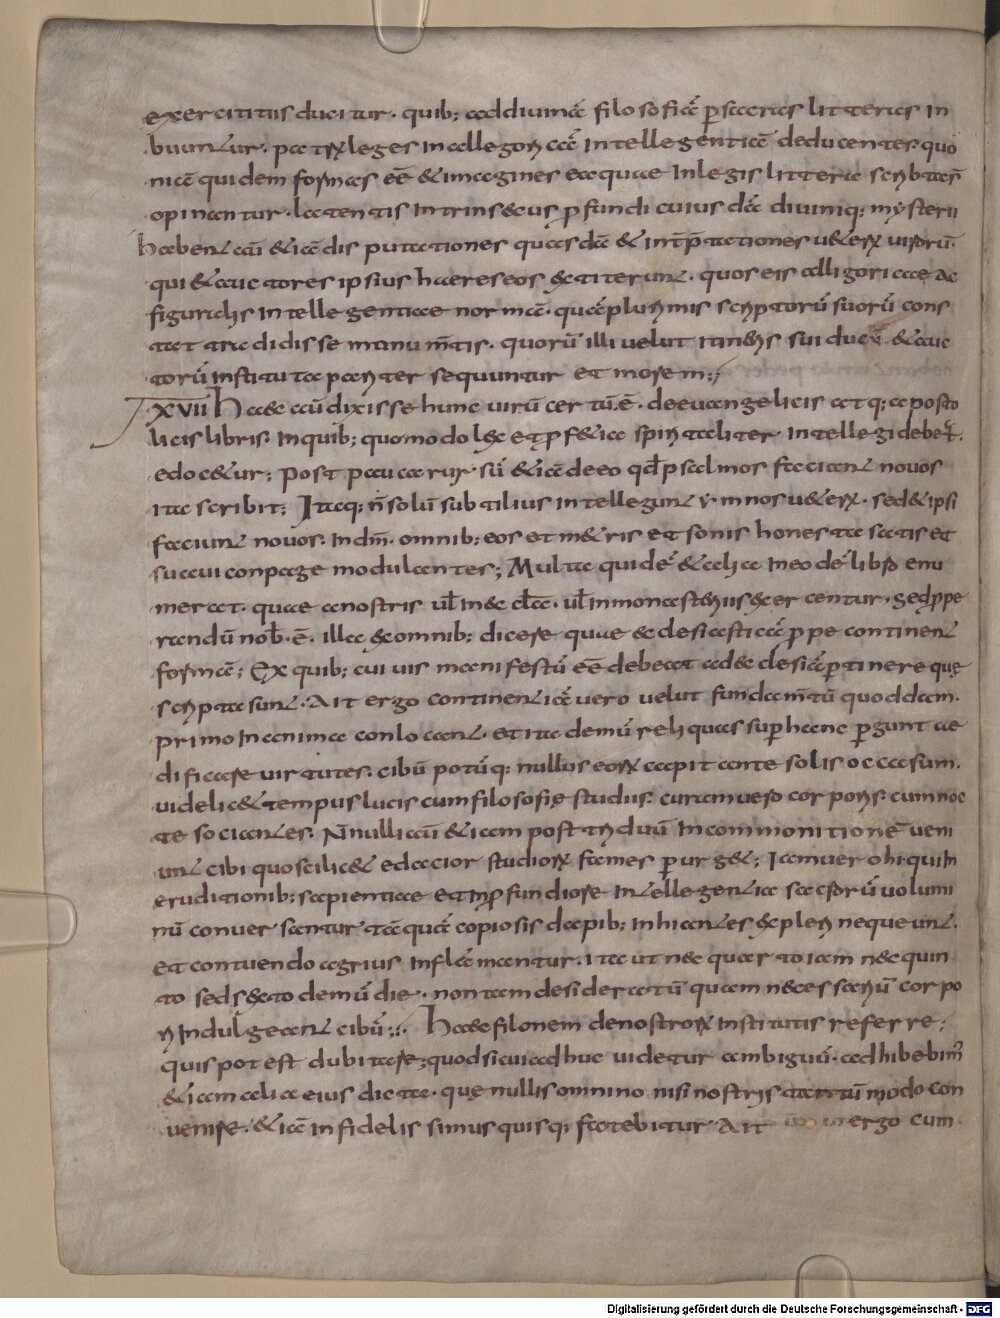 exercitiis ducitur. quib; addiuinā filosoficā p sacras litteras in
buunt̄ur. patrū leges inallegoricā intellegentiā deducentes quo
niā quidem formas eē & imagines eaquae inlegis littera scribtā s̄
opinantur. latentis intrinsecus p fundi cuius dā diuiniq; mysterii
habent̄ aut̄ & iā dis putationes quasdā & int̄p̄tationes ueterū uirorū.
qui & auctores ipsius haereseos extiterunt̄. quos eis alligoricae ac
figuralis intellegentiae normā. quā plurimis scriptorū suorū cons
tat tradidisse monum̄tis. quorū illi uelut itineris sui ducū & auc
torū instituta pariter sequuntur et morem;
XVII Haec aut̄ dixisse hunc uirū certū.ē. deeuangelicis atq; aposto
licis libris. inquib; quomodo lex et p f&ia spiritaliter intellegi deber&.
edoc&ur; Post pauca rur sū &iā deeo qd̄ psalmos faciant̄ nouos
ita scribit; Itaq; n̄ solū subtilius intellegunt̄ ymnos ueterū. sed & ipsi
faciunt̄ nouos. indm̄. omnib; eos et m&ris et sonis honesta satis et
suaui conpage modulantes; Multa quidē & alia ineodē libro enu
merat. quae anostris ul̄ in ec cl̄ā. ul̄ inmonasteriis exercentur. sed p pe
randū nob̄.ē. illa ex omnib; dicere quae ec clesiasticā p pe continent̄
formā; Ex quib; cui uis manifestū eē debeat ad ec clesiā p tinere quę
scripta sunt̄. Ait ergo continent̄iā uero uelut fundam̄tū quoddam.
primo inanima conlocant̄. et ita demū reliquas sup hanc p gunt ae
dificare uirtutes. cibū potūq; nullus eorū capit ante solis occasum.
uidelic& tempus lucis cum filosofię studiis. curam uero corporis. cum noc
te sociant̄es. N̄nulli aut̄ &iam post triduū incommonitionē ueni
unt̄ cibi quos scilic& edacior studiorū fames p urg&; Iam uero hi qui in
eruditionib; sapientiae et in p fundiore int̄ellegent̄ia sacrorū uolumi
nū conuersantur tā quā copiosis dapib; inhiant̄es expleri nequeunt̄.
et contuendo aegrius inflāmantur. ita ut nec quarto iam nec quin
to sed sexto demū die. non tam desideratū quam necessariū corpo
ri indulgeant̄ cibū;. Haec filonem denostrorū institutis referre.
quis potest dubitare; quod si cui adhuc uidetur ambiguū. adhibebim'
&iam alia eius dicta. quę nullis omnino nisi nostris tantūmodo con
uenire. &iā infidelis simus quisq; fatebitur Ait ergo cum
Digitalisierung gefördert durch die Deutsche Forschungsgemeinschaft - DFG